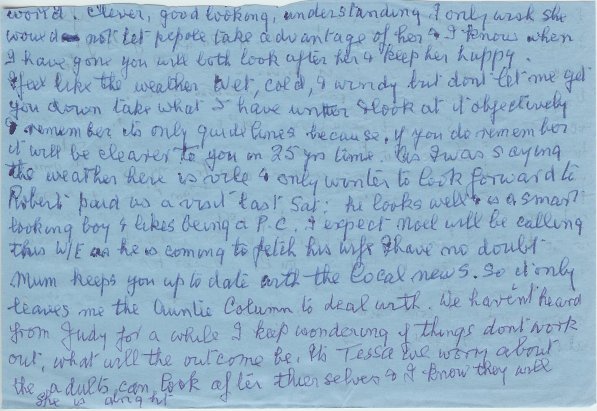 world. Clever, good looking, understanding I only wish she
would not let pepole take advantage of her & I know when
I have gone you will both look after her & keep her happy.
I feel like the weather wet, cold, & windy but dont let me get
you down take what I have written & look at it objectively
& remember its only guidelines because, if you do remember
it will be clearer to you in 25 yrs time. As I was saying
the weather here is vile & only winter to look forward to
Robert paid us a visit last Sat: he looks well & is a smart
looking boy & likes being a P.C. I expect Noel will be calling
this W/E as he is coming to fetch his wife I have no doubt
Mum keeps you up to date with the local news. So it only
leaves me the Auntie Column to deal with. We haven't heard
from Judy for a while I keep wondering if things dont work
out, what will the outcome be. Its Tessa we worry about
the adults can look after thierselves & I know they will
she is alright